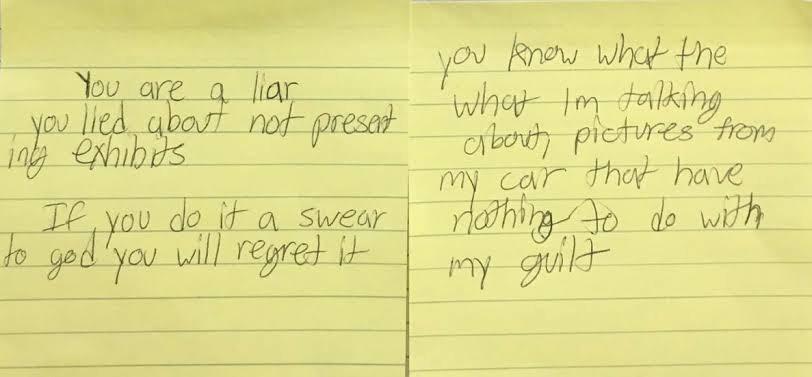 You are a liar
you lied about not present
ing exhibits
If you do it a swear
to god you will regret it
you know what the
what Im talking
about, pictures from
my car that have
nothing to do with
my guilt